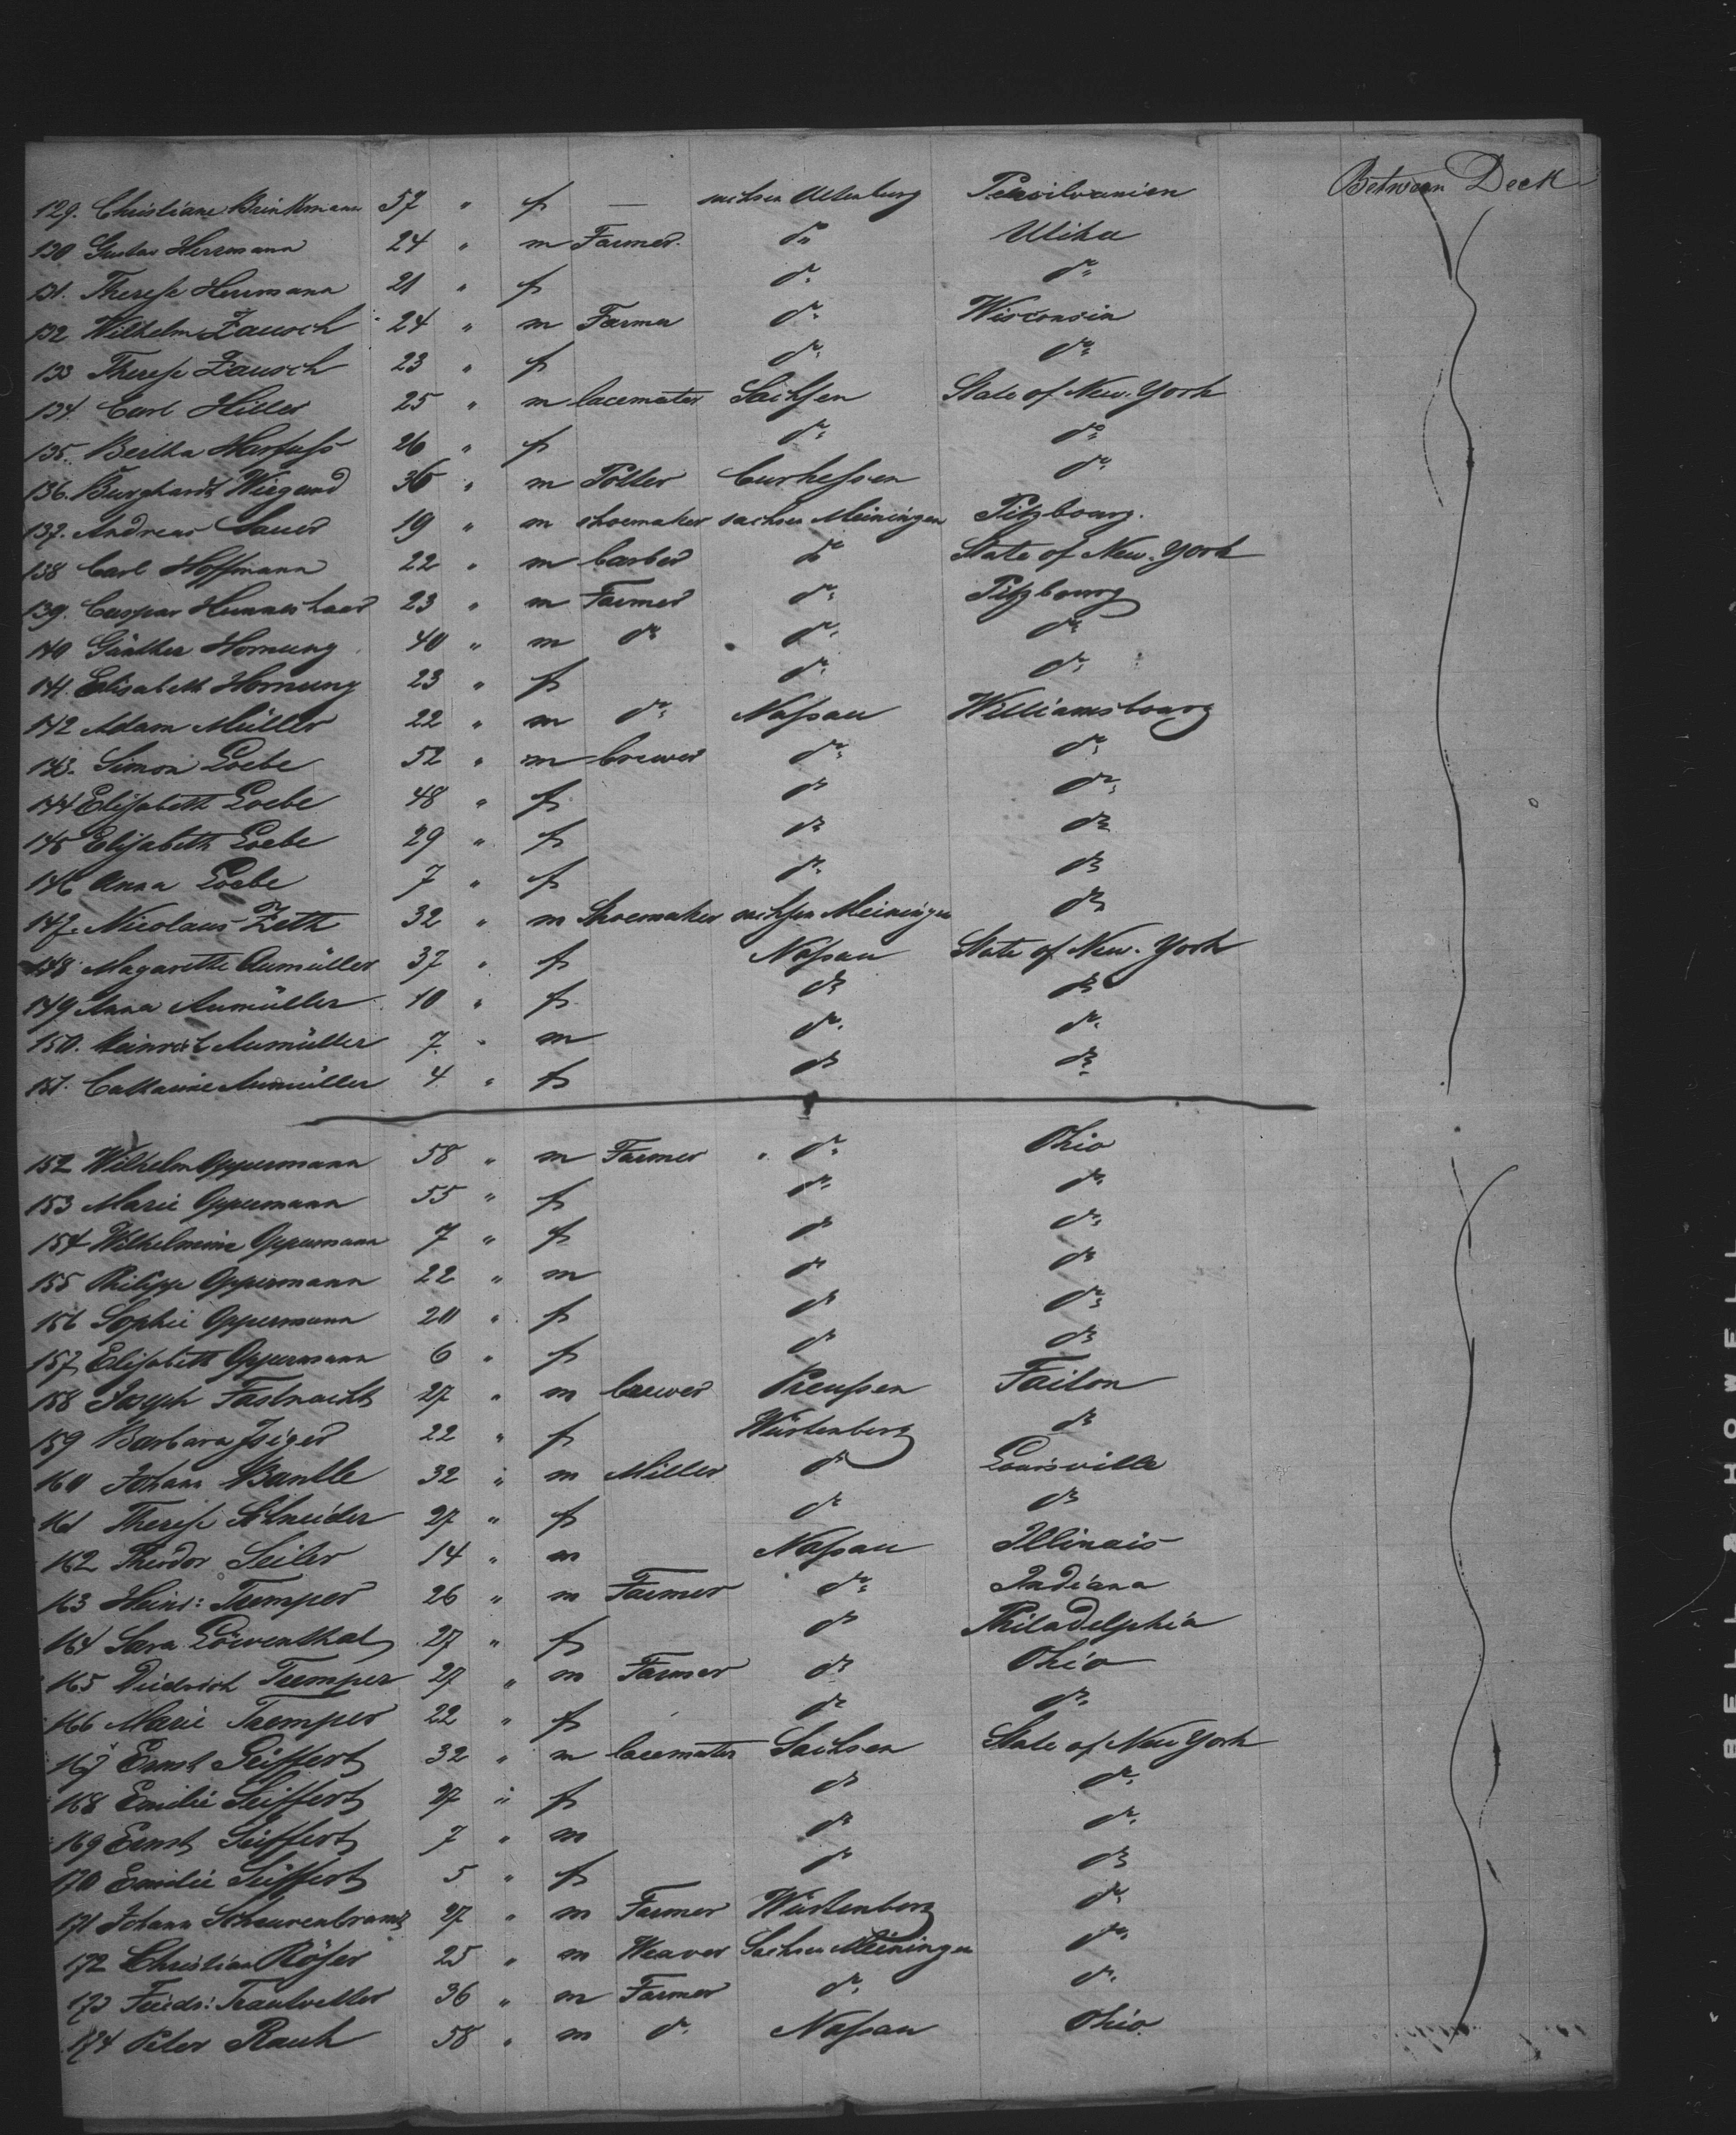 Between Deck
129. Christiane Brinkmann 57 " f — sachsen Altenburg Pensilvanien
130 Gustav Herrmann 24 " m Farmer do Utika
131. Therese Herrmann 21 " f do do
132 Wilhelm Zausch 24 " m Farmer do Wisconsin
133 Therese Zausch 23 " f do do
134. Carl Hiller 25 " m lacemaker Sachsen State of New-York
135. Bertha Harfuss 26 " f do do
136. Burghardt Wiegand 36 " m Potter Curhessen do
137. Andreas Sauer 19 " m shoemaker sachsen Meiningen Pitzbourg.
138 Carl Hoffmann 22 " m barber do State of New-York
139. Caspar 23 " m Farmer do Pitzbourg
140 Günther Hornung 40 " m do do do
141. Elisabeth Hornung 23 " f do do
142 Adam Müller 22 " m do Nassau Williamsbourg
143. Simon Loebe 52 " m brewer do do
144 Elisabeth Loebe 48 " f do do
145 Elisabeth Loebe 29 " f do do
146 Anna Loebe 7 " f do do
147. Nicolaus Zeth 32 " m Shoemaker sachsen Meiningen do
148 Magarethe Aumüller 37 " f Nassau State of New-York
149 Anna Aumüller 10 " f do do
150. Heinrich Aumüller 7 " m do do
151. Catharine Aumüller 4 " f do do
152 Wilhelm Oppermann 58 " m Farmer do Ohio
153 Marie Oppermann 55 " f do do
154 Wilhelmine Oppermann 7 " f do do
155 Philipp Oppermann 22 " m do do
156 Sophie Oppermann 20 " f do do
157 Elisabeth Oppermann 6 " f do do
158 Joseph Fastnacht 27 " m brewer Preussen Taiton
159 Barbara 22 " f Würtenberg do
160 Johann Bantle 32 " m Miller do Louisville
161 Therese Schneider 27 " f do do
162 Theodor Seiler 14 " m Nassau Illinais
163 Heinr: Tremper 26 " m Farmer do Indiana
164 Sara Löwenthal 27 " f do Philadelphia
165 Diedrich Tremper 27 " m Farmer do Ohio
166 Marie Tremper 22 " f do do
167 Ernst Seiffert 32 " m lacemaker Sachsen State of New York
168 Emilie Seiffert 27 " f do do
169 Ernst Seiffert 7 " m do do
170 Emilie Seiffert 5 " f do do
171 Johann Scheurenbrand 27 " m Farmer Würtenberg do
172 Christian Röser 25 " m Weaver Sachsen Meiningen do
173 Friedr: Trautvetter 36 " m Farmer do do
174 Peter Rauh 58 " m do Nassau Ohio
BELL & HOWELL